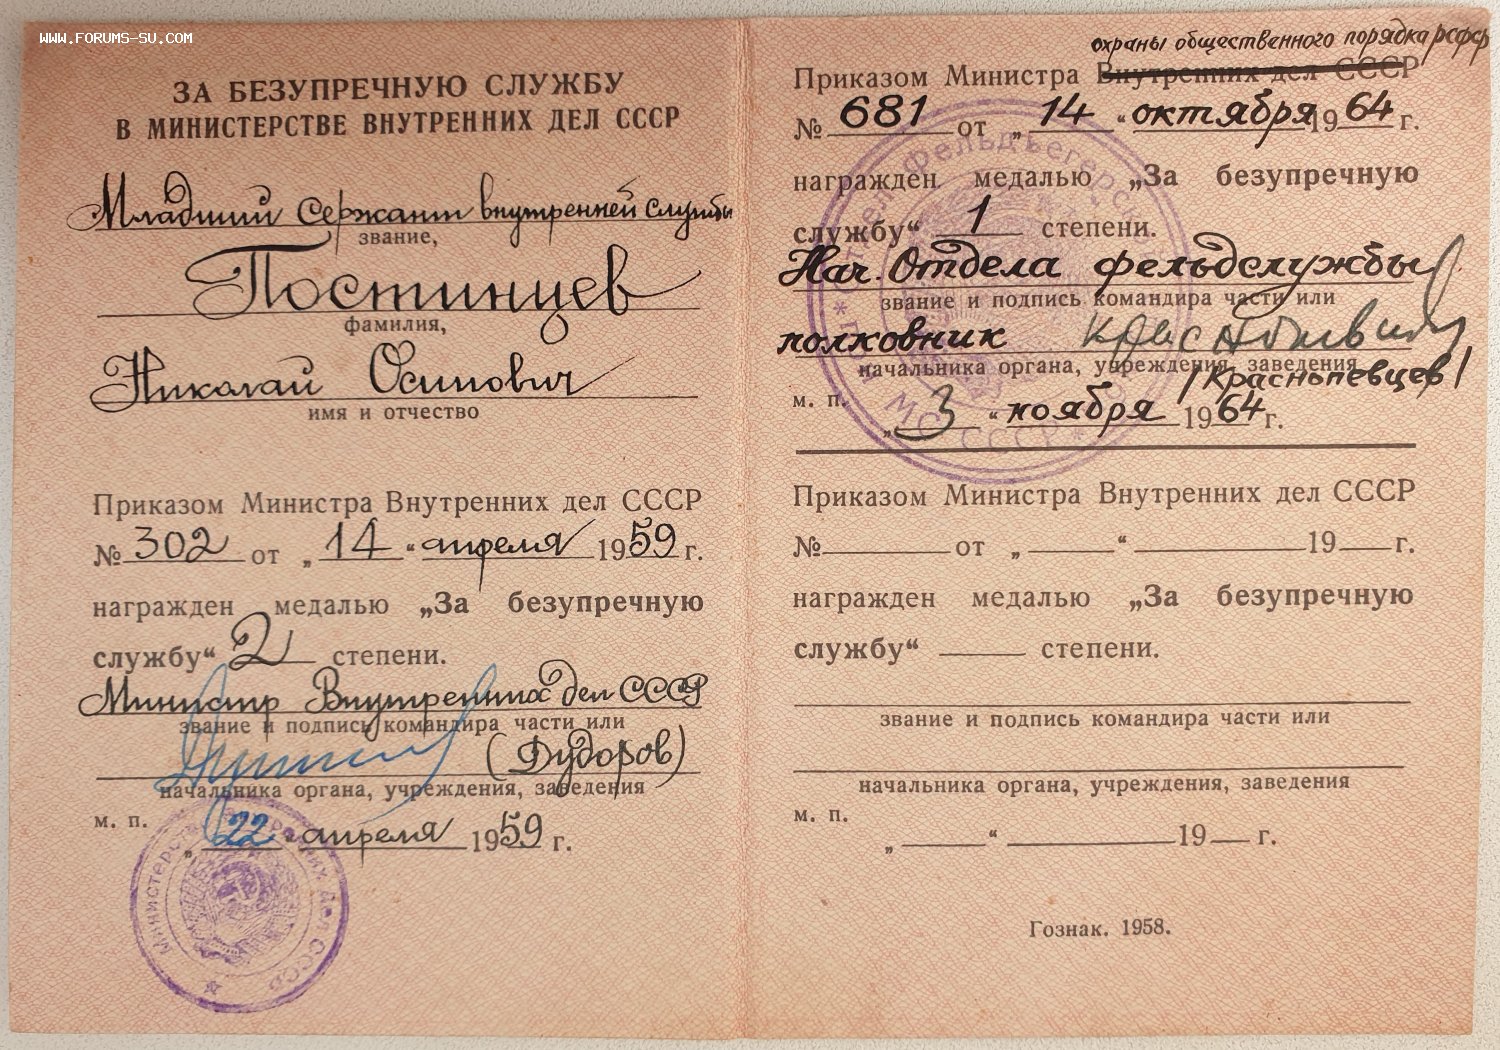 WWW.FORUMS-SU.COM
ЗА БЕЗУПРЕЧНУЮ СЛУЖБУ
В МИНИСТЕРСТВЕ ВНУТРЕННИХ ДЕЛ СССР
Младший сержант внутренней службы
звание,
Постинцев
фамилия,
Николай Осипович
имя и отчество
Приказом Министра Внутренних дел СССР
№ 302 от „14“ апреля 1959 г.
награжден медалью „За безупречную
службу“ 2 степени.
Министр Внутренних дел СССР
звание и подпись командира части или
(Дудоров)
начальника органа, учреждения, заведения
м. п.
„22“ апреля 1959 г.
Министерство Внутренних Дел СССР
охраны общественного порядка РСФСР
Приказом Министра Внутренних дел СССР
№ 681 от „14“ октября 1964 г.
награжден медалью „За безупречную
службу“ 1 степени.
Нач. Отдела фельдслужбы
звание и подпись командира части или
полковник
начальника органа, учреждения, заведения
/Краснопевцев/
м. п.
„3“ ноября 1964 г.
Приказом Министра Внутренних дел СССР
№ от „ “ 19 г.
награжден медалью „За безупречную
службу“ степени.
звание и подпись командира части или
начальника органа, учреждения, заведения
м. п.
„ “ 19 г.
Гознак. 1958.